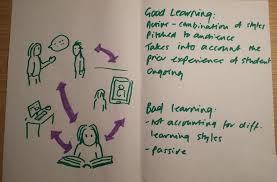 Good Learning:
Active - combination of styles
Pitched to audience
Takes into account the
prior experience of student
Ongoing
Bad learning:
- not accounting for diff.
learning styles
- passive